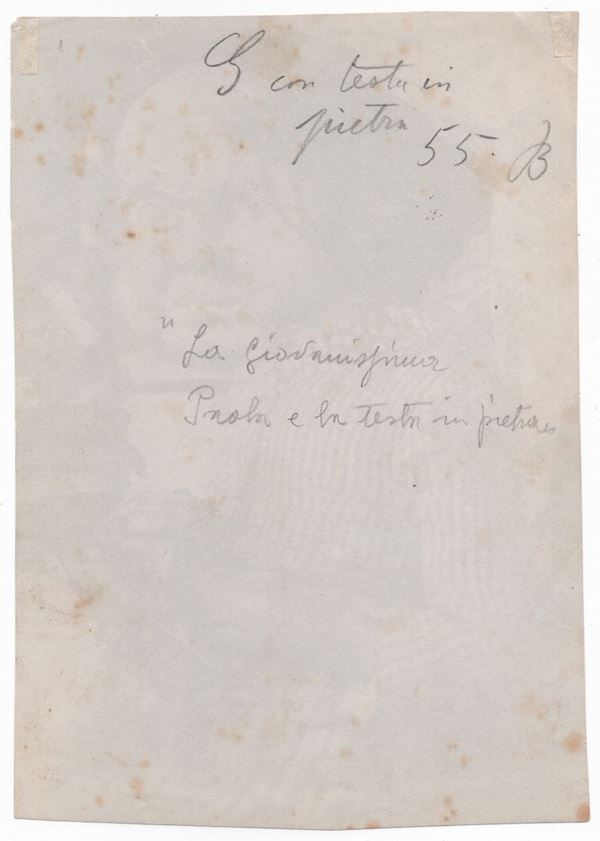 G con testa in
pietra
55. B
"La giovanissima
Paola e la testa in pietra"